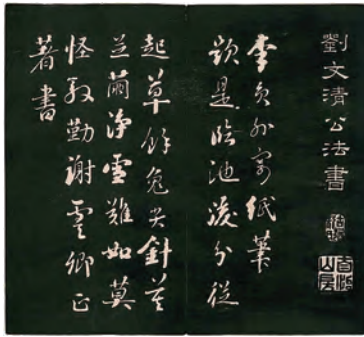 劉文清公法書
李員外寄紙筆
題是臨池後分從
起草餘兔尖針莫
並繭淨雪難如莫
怪殷勤謝虞卿正
著書